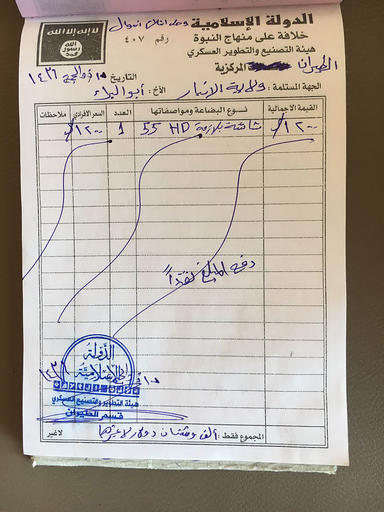 لا إله إلا الله
الله
رسول
محمد
الدولة الإسلامية
خلافة على منهاج النبوة
رقم ٤٠٧
هيئة التصنيع والتطوير العسكري
الطيران
المركزية
التاريخ ١٥ ذو الحجة ١٤٣٦
الجهة المستلمة: ولاية الأنبار
الأخ: أبو البراء
القيمة الاجمالية
نوع البضاعة ومواصفاتها
العدد
السعر الافرادي
ملاحظات
١٢٠٠
شاشة بلازمة 55 HD
1
١٢٠٠
دفع المبلغ نقداً
الدولة
الإسلامية
هيئة التطوير والتصنيع العسكري
قسم الطيران
المجموع فقط: ألف ومئتان دولار لا غيرها
لاغير